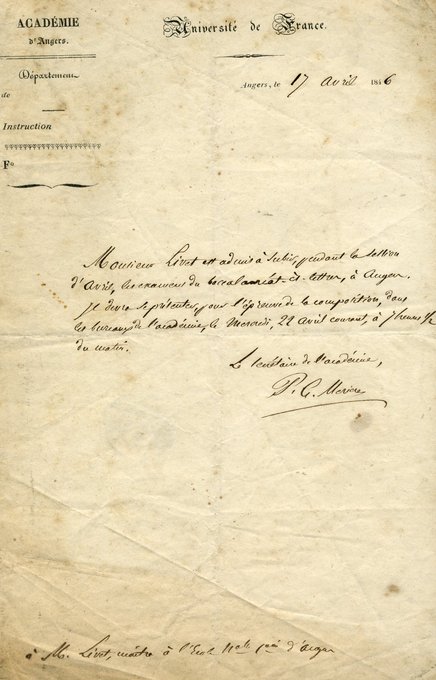 ACADÉMIE
d'Angers.
Département
de
Instruction
F°
Université de France.
Angers, le 17 avril 1846
Monsieur Livet est admis à subir, pendant la session
d'Avril, les examens du baccalauréat-ès-lettres, à Angers.
Il devra se présenter, pour l'épreuve de la composition, dans
les bureaux de l'académie, le Mercredi, 22 avril courant, à 7 heures 1/2
du matin.
Le secrétaire de l'académie,
P. C.
à M. Livet, maître à l'Ecole d'Angers